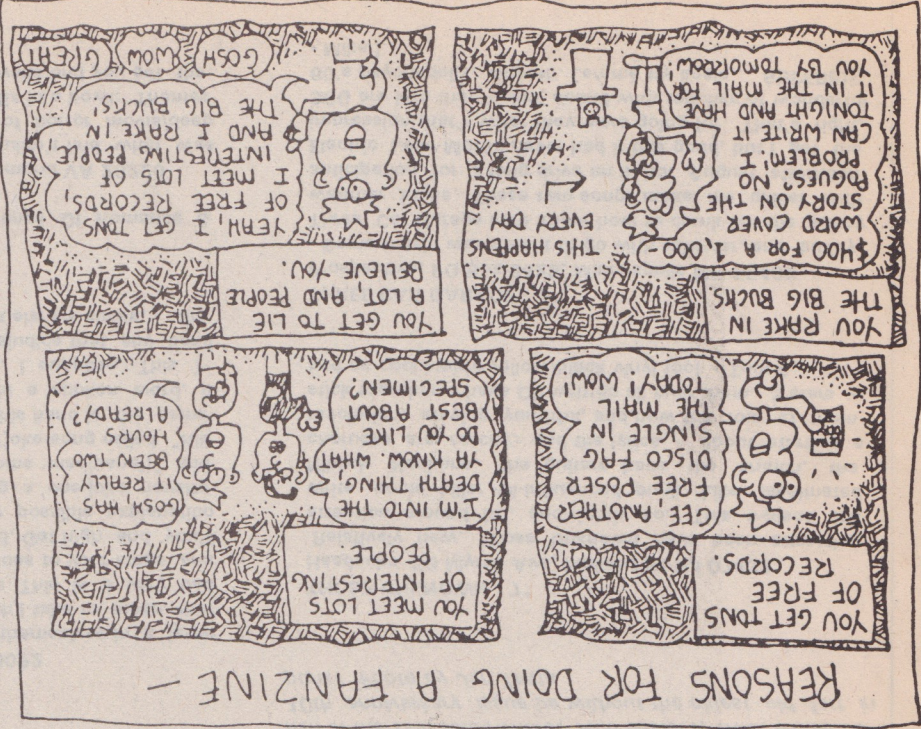 REASONS FOR DOING A FANZINE —
YOU GET TONS
OF FREE
RECORDS
GEE, ANOTHER
FREE POSER
DISCO FAG
SINGLE IN
THE MAIL
TODAY! WOW!
YOU MEET LOTS
OF INTERESTING
PEOPLE
I'M INTO THE
DEATH THING,
YA KNOW. WHAT
DO YOU LIKE
BEST ABOUT
SPECIMEN?
GOSH, HAS
IT REALLY
BEEN TWO
HOURS
ALREADY?
YOU RAKE IN
THE BIG BUCKS
$400 FOR A 1,000
WORD COVER
STORY ON THE
POGUES? NO
PROBLEM! I
CAN WRITE IT
TONIGHT AND HAVE
IT IN THE MAIL FOR
YOU BY TOMORROW
THIS HAPPENS
EVERY DAY
YOU GET TO LIE
A LOT, AND PEOPLE
BELIEVE YOU.
YEAH, I GET TONS
OF FREE RECORDS,
I MEET LOTS OF
INTERESTING PEOPLE
AND I RAKE IN
THE BIG BUCKS.
GOSH
WOW
GREAT